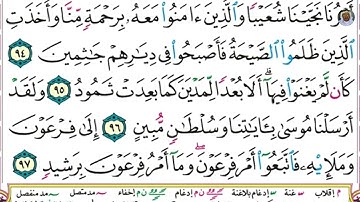 نَا نَجَّيْنَا شُعَيْبًا وَٱلَّذِينَ ءَامَنُوا۟ مَعَهُۥ بِرَحْمَةٍ مِّنَّا وَأَخَذَتِ
ٱلَّذِينَ ظَلَمُوا۟ ٱلصَّيْحَةُ فَأَصْبَحُوا۟ فِى دِيَٰرِهِمْ جَٰثِمِينَ ٩٤
كَأَن لَّمْ يَغْنَوْا۟ فِيهَآ ۗ أَلَا بُعْدًا لِّمَدْيَنَ كَمَا بَعِدَتْ ثَمُودُ ٩٥ وَلَقَدْ
أَرْسَلْنَا مُوسَىٰ بِـَٔايَٰتِنَا وَسُلْطَٰنٍ مُّبِينٍ ٩٦ إِلَىٰ فِرْعَوْنَ
وَمَلَإِي۟هِۦ فَٱتَّبَعُوٓا۟ أَمْرَ فِرْعَوْنَ ۖ وَمَآ أَمْرُ فِرْعَوْنَ بِرَشِيدٍ ٩٧
م إقلاب غنة إدغام بلاغنة ن م إدغام ن م إخفاء مد متصل مد منفصل